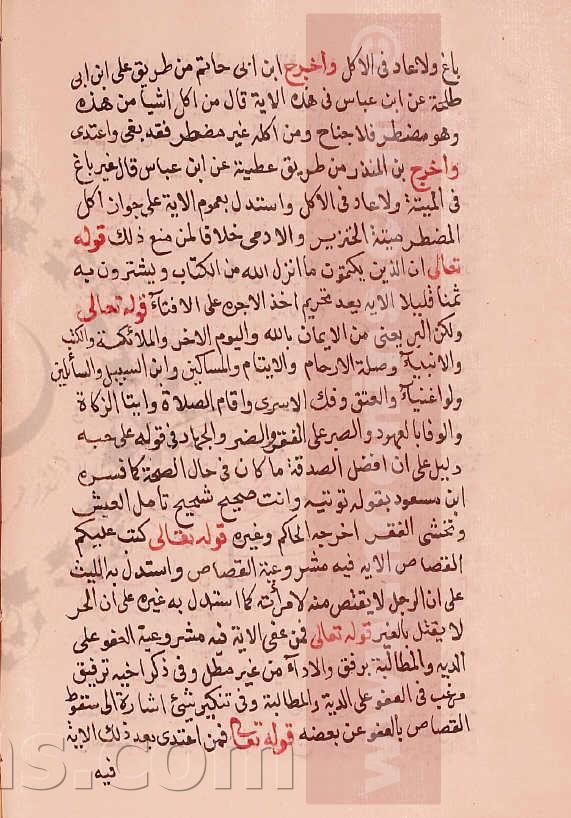 باغ ولاعاد فى الاكل واخرج ابن ابى حاتم من طريق على ابن ابى
طلحة عن ابن عباس فى هذه الاية قال من اكل اشيا من هذه
وهو مضطر فلا جناح ومن اكله غير مضطر فقد بغى واعتدى
واخرج بن المنذر من طريق عطية عن ابن عباس قال غير باغ
فى الميتة ولاعاد فى الاكل واستدل بعموم الاية على جواز اكل
المضطر ميتة الخنزير والادمى خلافا لمن منع ذلك قوله
تعالى ان الذين يكتمون ما انزل الله من الكتاب ويشترون به
ثمنا قليلا الايه يعد تحريم اخذ الاجره على الافتآء قوله تعالى
ولكن البر يعنى من الايمان بالله واليوم الاخر والملائكة والكتب
والانبيآء وصلة الارحام والايتام والمساكين وابن السبيل والسآئلين
ولو اغنيآء والعتق وفك الاسرى واقام الصلاة وايتا الزكاة
والوفا بالعهود والصبر على الفقر والضر والجهاد فى قوله على حبه
دليل على ان افضل الصدقة ما كان فى حال الصحة كما فسره
ابن مسعود بقوله توتيه وانت صحيح شحيح تامل العيش
وتخشى الفقر اخرجه الحاكم وغيره قوله تعالى كتب عليكم
القصاص الايه فيه مشروعية القصاص واستدل به الليث
على ان الرجل لا يقتص منه لامرأته كما استدل به غيره على ان الحر
لا يقتل بالغير قوله تعالى فمن عفى الاية فيه مشروعية العفو على
الديه والمطالبة برفق والادآء من غير مطل وفى ذكر اخيه ترفيق
مرغب فى العفو على الدية والمطالبة وفى تنكير شئ اشارة الى سقوط
القصاص بالعفو عن بعضه قوله تعالى فمن اعتدى بعد ذلك الاية
فيه
ns.com